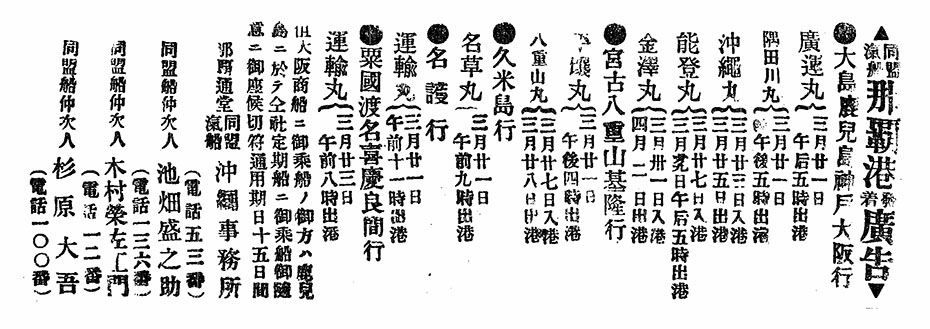 ▲同盟汽船那覇港發着廣告▼
●大島鹿兒島神戸大阪行
廣運丸 三月廿一日 午后五時出港
隅田川丸 三月廿一日 午後五時出港
沖繩丸 三月廿三日入港 三月廿五日出港
能登丸 三月廿七日入港 三月 日午后五時出港
金澤丸 三月卅一日入港 四月一日出港
●宮古八重山基隆行
壤丸 三月廿一日 午後四時出港
八重山丸 三月廿七日入港 三月廿八日出港
●久米島行
名草丸 三月廿一日 午前九時出港
●名護行
運輸丸 三月廿一日 午前十一時出港
●粟國渡名喜慶良間行
運輸丸 三月廿三日 午前八時出港
但大阪商船ニ御乘船ノ御方ハ鹿兒
島ニ於テ仝社定期船ニ御乘船御隨
意ニ御座候切符通用期日十五日間
那覇通堂 同盟汽船 沖繩事務所
(電話五三番)
同盟船仲次人 池畑盛之助
(電話一三六番)
同盟船仲次人 木村榮左工門
(電話一二番)
同盟船仲次人 杉原大吾
(電話一〇〇番)